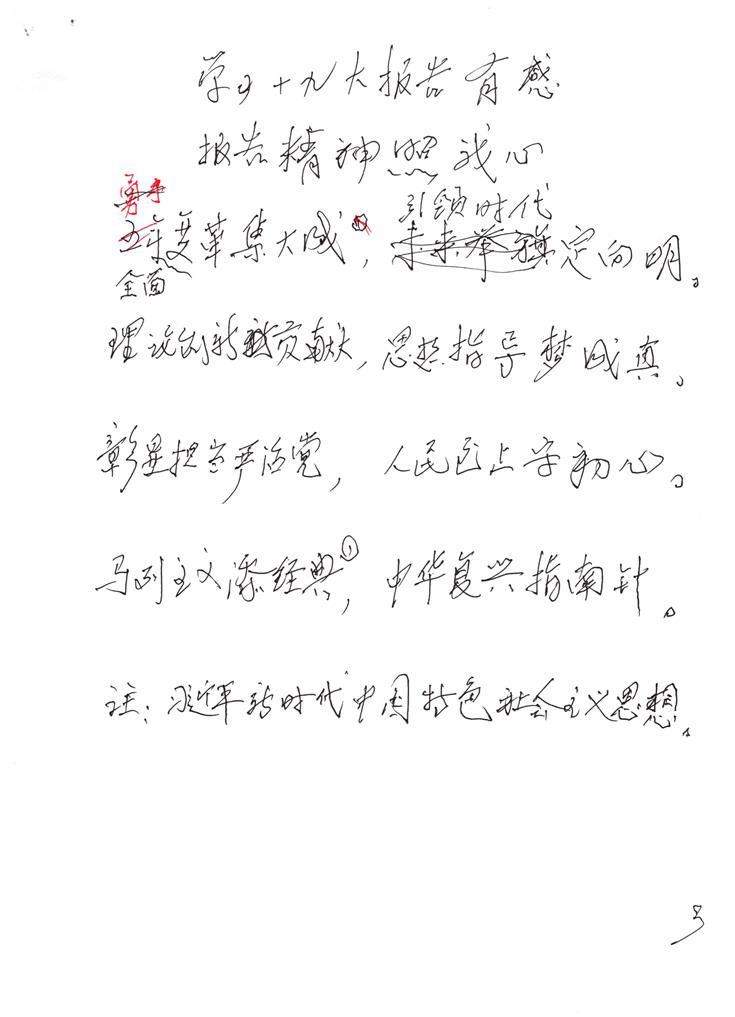 学习十九大报告有感
报告精神照我心
勇于
引领时代
五年变革集大成，未来举旗定向明。
全面
理论创新新贡献，思想指导梦成真。
彰显担当严治党，人民至上守初心。
马列主义添经典①，中华复兴指南针。
注：习近平新时代中国特色社会主义思想。